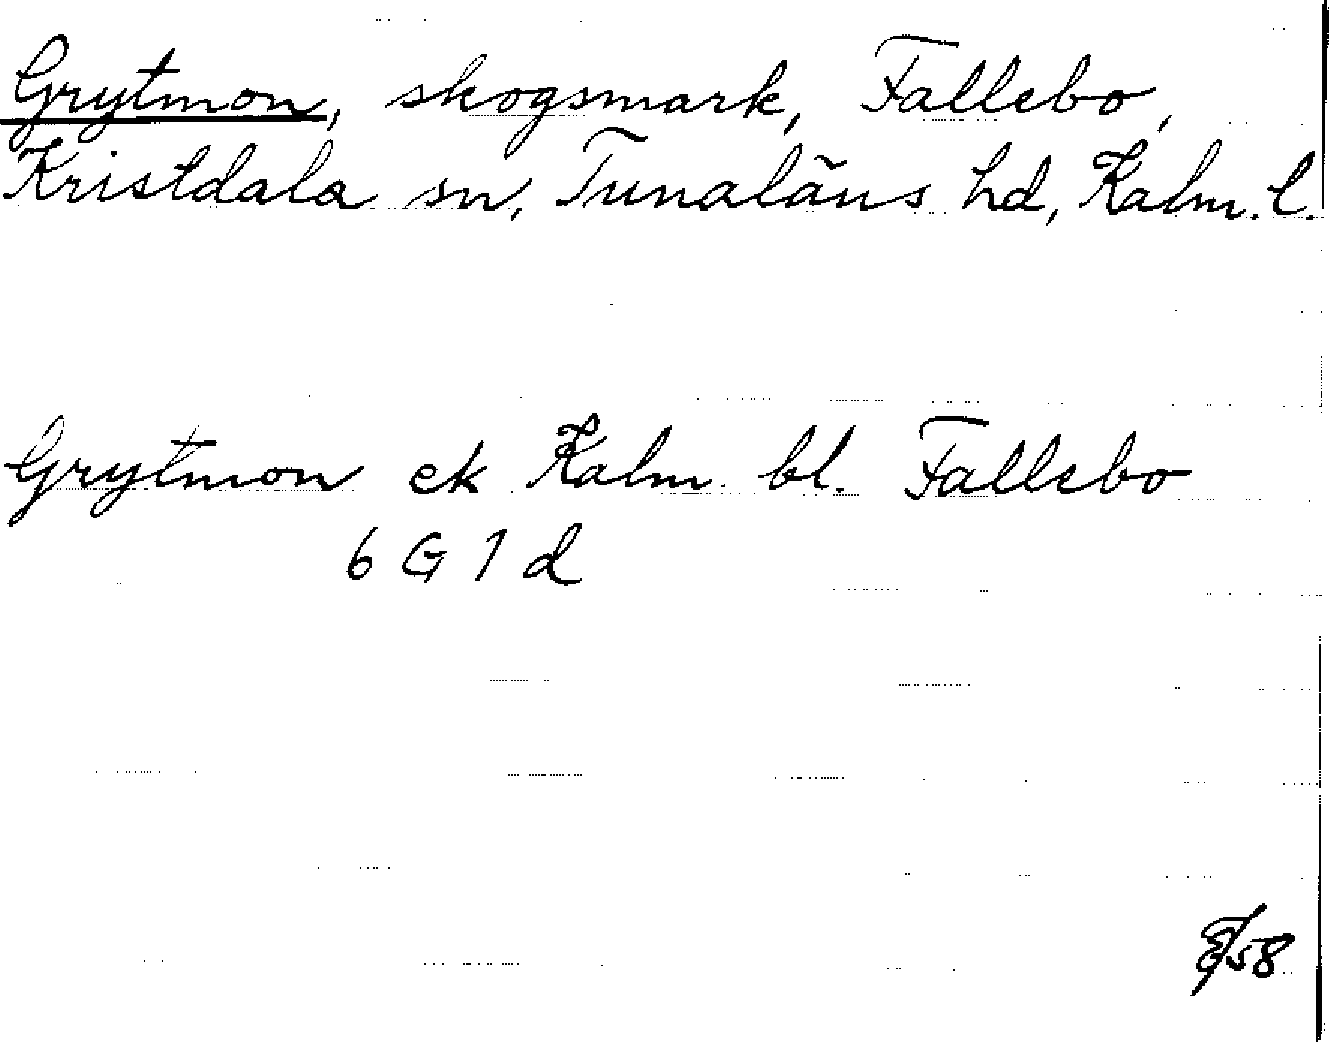 Grytmon, skogsmark, Fallebo,
Kristdala sn, Tunaläns hd, Kalm. l.
Grytmon ek Kalm bl. Fallebo
6 G 1 d
58